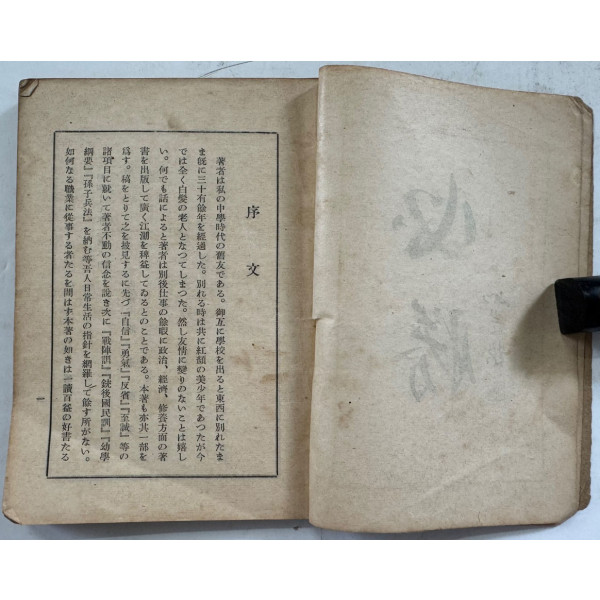 序文
著者は私の中學時代の舊友である。御互に學校を出ると東西に別れたま
ま旣に三十有餘年を經過した。別れる時は共に紅顔の美少年であつたが今
では全く白髮の老人となつてしまつた。然し友情に變りのないことは嬉し
い。何でも話によると著者は別後仕事の餘暇に政治、經濟、修養方面の著
書を出版して廣く江湖を裨益してゐるとのことである。本著も亦其一部を
爲す。稿をとりて之を披見するに先づ『自信』『勇氣』『反省』『至誠』等の
諸項目に就いて著者不動の信念を說き次に『戰陣訓』『銃後國民訓』『幼學
綱要』『孫子兵法』を納む等吾人日常生活の指針を網羅して餘す所がない。
如何なる職業に從事する者たるを問はず本著の如きは一讀百益の好書たる
一
必
勝